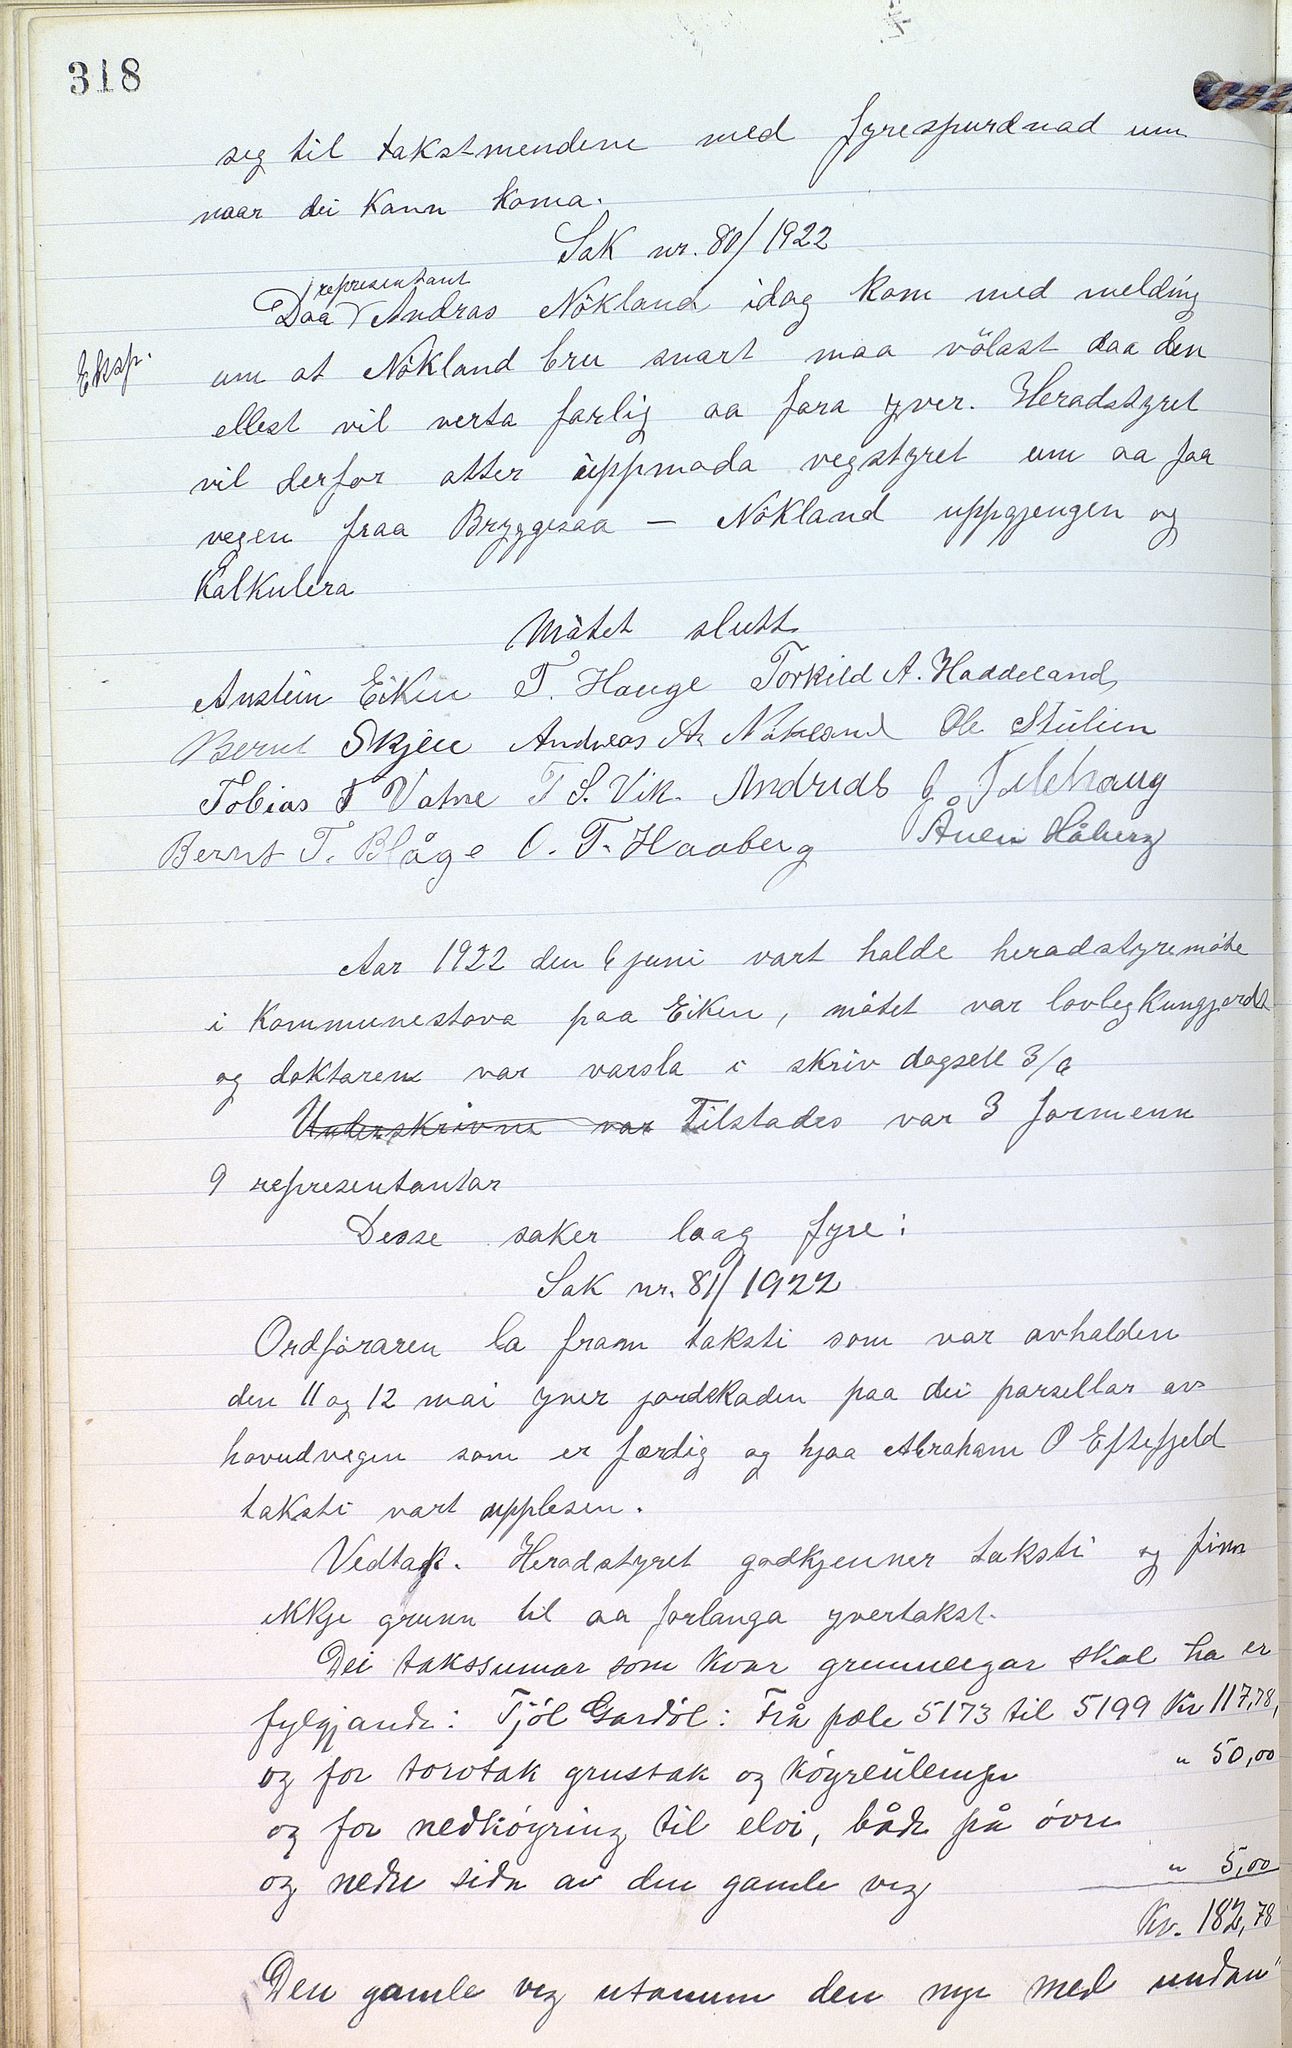 318
seg til takstmendene med fyrespurdnad um
naar dei kann koma.
Sak nr. 80/1922
representant
Daa Andras Nökland idag kom med melding
Eksp.
um at Nökland bru snart maa völast daa den
ellest vil verta farlig aa fara yver. Heradstyret
vil derfor atter uppmoda vegstyret um aa faa
vegen fraa Bryggesaa - Nökland uppgjengen og
kalkulera
Mötet slutt
Anstein Eiken T. Hauge Torkild A. Haddeland
Bernt Skjeie Andreas A. Nökland Ole Stulien
Tobias T Vatne T S. Vik. Andreas Filehaug
Bernt T. Blåge O. T. Haaberg Ånen Håberg
Aar 1922 den 6 juni vart halde heradstyremöte
i kommunestova paa Eiken, mötet var lovleg kunngjordt
og doktaren var varsla i skriv dagsett 3/6
Underskrivne var Tilstades var 3 formenn
9 representantar
Desse saker laag fyre:
Sak nr. 81/1922
Ordföraren la fram taksti som var avhalden
den 11 og 12 mai yver jordskaden paa dei parsellar av
hovudvegen som er færdig og hjaa Abraham O Eftefjeld
taksti vart upplesen.
Vedtak. Heradstyret godkjenner taksti og finn
ikkje grunn til aa forlanga yvertakst.
Dei takssumar som kvar grunneigar skal ha er
fylgjande: Tjöl Gardöl: Frå pæle 5173 til 5199 Kr 117,78,
og for torvtak grustak og köyreulempe " 50,00
og for nedköyring til elvi, både på övre
og nedre sida av den gamle veg " 5,00
Kr. 182,78
Den gamle veg utanum den nye med undan